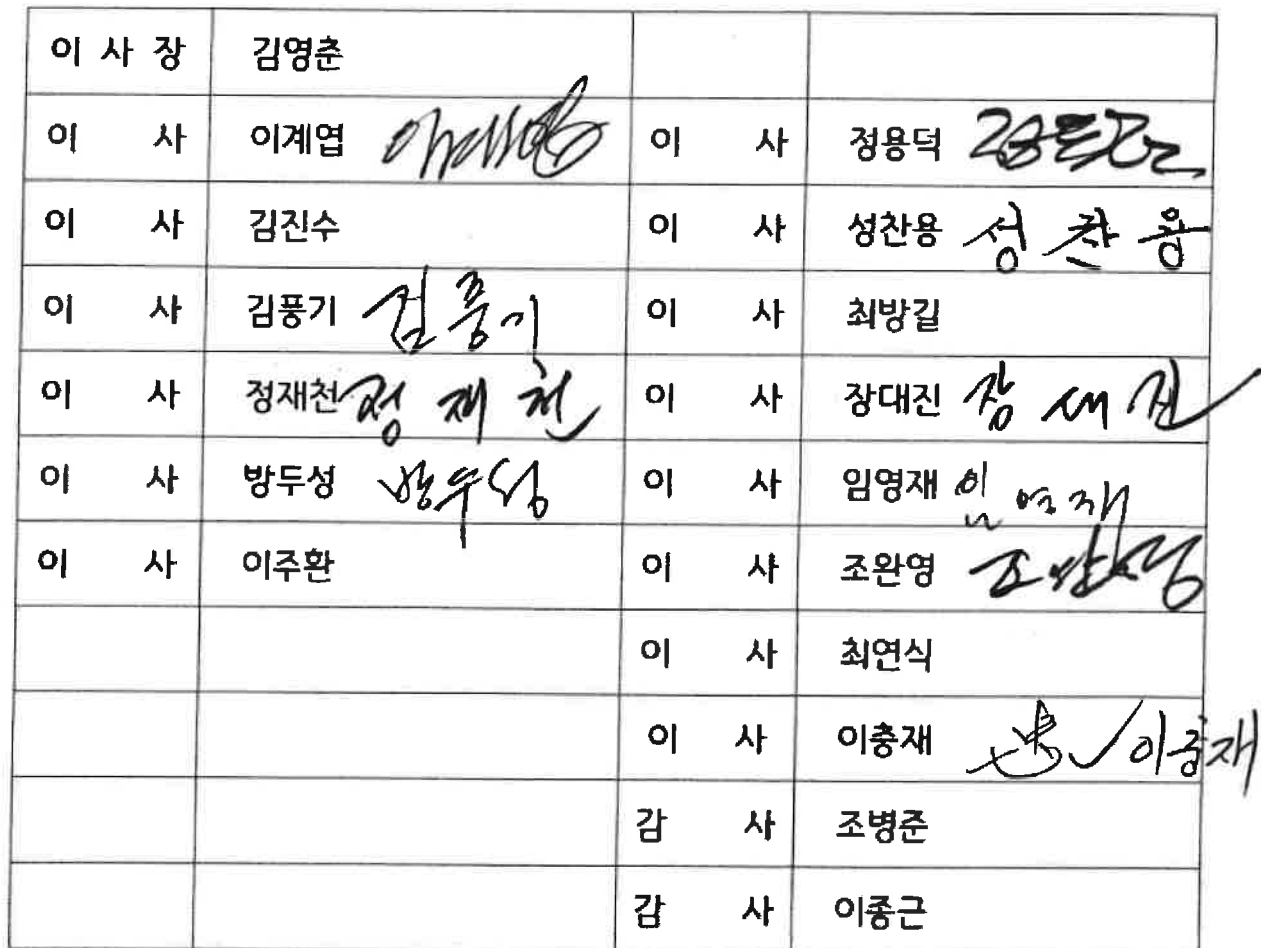 이 사 장 김영춘
이 사 이계엽 이 사 정용덕
이 사 김진수 이 사 성찬용 성찬용
이 사 김풍기 김풍기 이 사 최방길
이 사 정재천 정재천 이 사 장대진
이 사 방두성 이 사 임영재 임영재
이 사 이주환 이 사 조완영
이 사 최연식
이 사 이충재 이충재
감 사 조병준
감 사 이종근